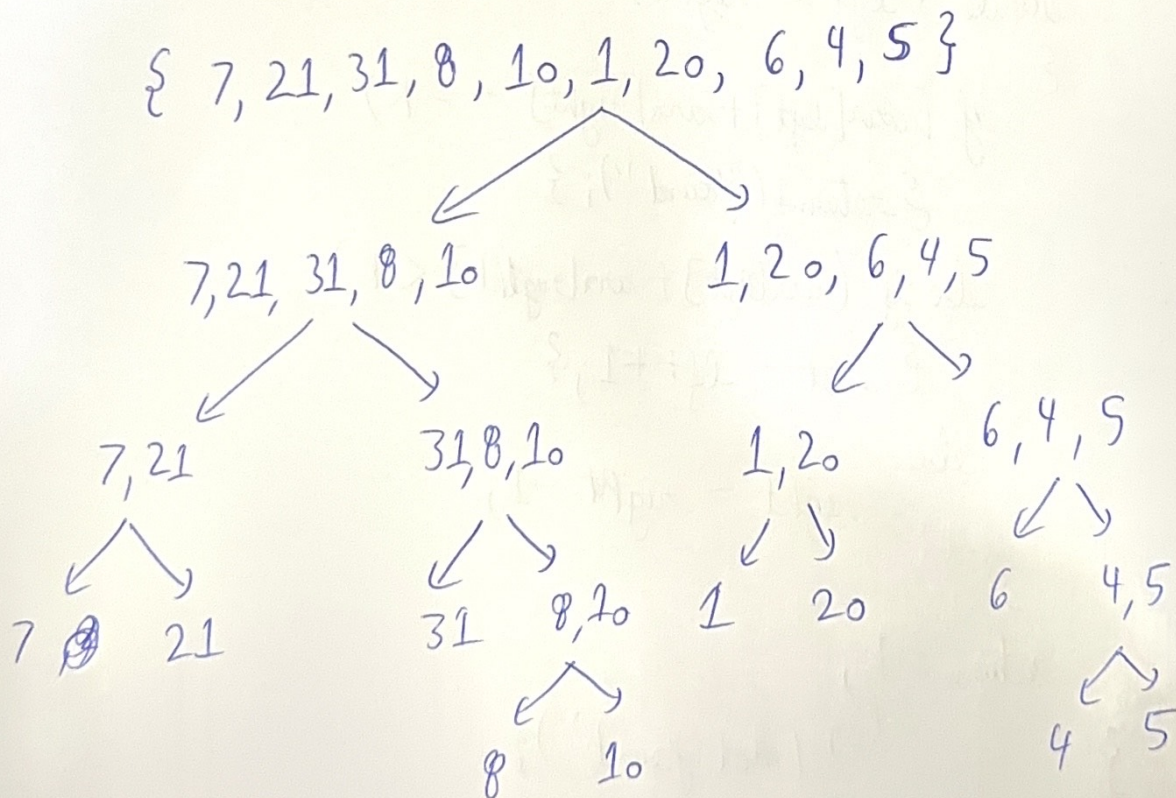 { 7, 21, 31, 8, 10, 1, 20, 6, 4, 5 }
7, 21, 31, 8, 10 1, 20, 6, 4, 5
7, 21 31, 8, 10 1, 20 6, 4, 5
7 21 31 8, 10 1 20 6 4, 5
8 10 4 5